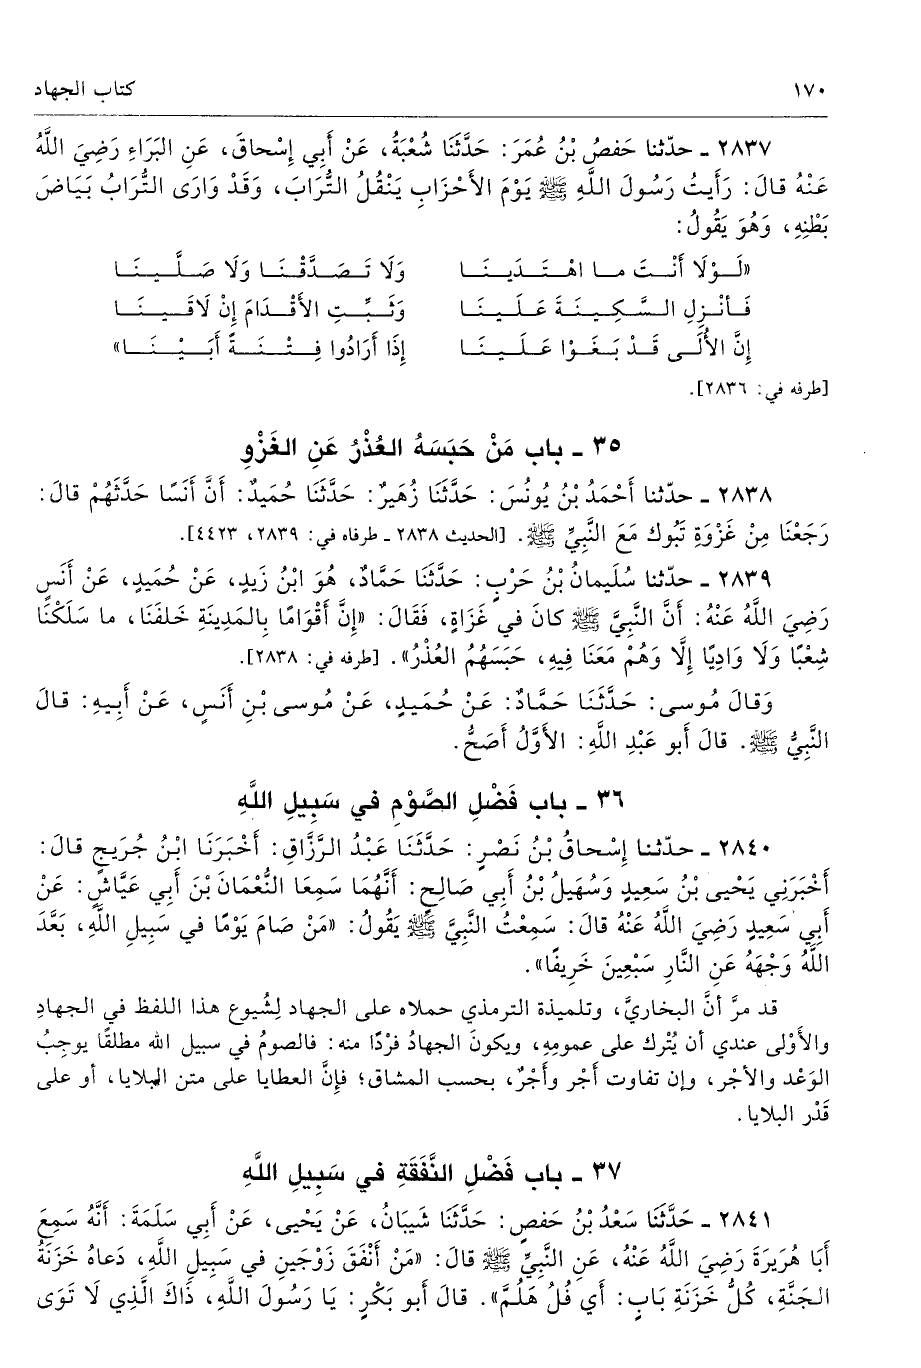 ١٧٠ كتاب الجهاد
٢٨٣٧ ـ حدّثنا حَفصُ بْنُ عُمَرَ: حَدَّثَنَا شُعْبَةُ، عَنْ أَبِي إِسْحاقَ، عَنِ البَرَاءِ رَضِيَ اللَّهُ
عَنْهُ قالَ: رَأَيتُ رَسُولَ اللَّهِ ﷺ يَوْمَ الأَحْزَابِ يَنْقُلُ التُّرَابَ، وَقَدْ وَارَى التُّرَابُ بَيَاضَ
بَطْنِهِ، وَهُوَ يَقُولُ:
«لَـوْلَا أَنْـتَ مـا اهْـتَـدَيـنَـا وَلَا تَـصَـدَّقْـنَـا وَلَا صَـلَّـيـنَـا
فَـأَنْـزِلِ الـسَّـكِـيـنَـةَ عَـلَـيـنَـا وَثَـبِّـتِ الأَقْـدَامَ إِنْ لَاقَـيـنَـا
إِنَّ الأُلَـى قَـدْ بَـغَـوْا عَـلَـيـنَـا إِذَا أَرَادُوا فِـتْـنَـةً أَبَـيْـنَـا»
[طرفه في: ٢٨٣٦].
٣٥ ـ باب مَنْ حَبَسَهُ العُذْرُ عَنِ الغَزْوِ
٢٨٣٨ ـ حدّثنا أَحْمَدُ بْنُ يُونُسَ: حَدَّثَنَا زُهَيرٌ: حَدَّثَنَا حُمَيدٌ: أَنَّ أَنَسًا حَدَّثَهُمْ قالَ:
رَجَعْنَا مِنْ غَزْوَةِ تَبُوكَ مَعَ النَّبِيِّ ﷺ. [الحديث ٢٨٣٨ ـ طرفاه في: ٢٨٣٩، ٤٤٢٣].
٢٨٣٩ ـ حدّثنا سُلَيمانُ بْنُ حَرْبٍ: حَدَّثَنَا حَمَّادٌ، هُوَ ابْنُ زَيدٍ، عَنْ حُمَيدٍ، عَنْ أَنَسٍ
رَضِيَ اللَّهُ عَنْهُ: أَنَّ النَّبِيَّ ﷺ كانَ في غَزَاةٍ، فَقَالَ: «إِنَّ أَقْوَامًا بِالمَدِينَةِ خَلفَنَا، ما سَلَكْنَا
شِعْبًا وَلَا وَادِيًا إِلَّا وَهُمْ مَعَنَا فِيهِ، حَبَسَهُمُ العُذْرُ». [طرفه في: ٢٨٣٨].
وَقالَ مُوسى: حَدَّثَنَا حَمَّادٌ: عَنْ حُمَيدٍ، عَنْ مُوسى بْنِ أَنَسٍ، عَنْ أَبِيهِ: قالَ
النَّبِيُّ ﷺ. قالَ أَبو عَبْدِ اللَّهِ: الأَوَّلُ أَصَحُّ.
٣٦ ـ باب فَضْلِ الصَّوْمِ في سَبِيلِ اللَّهِ
٢٨٤٠ ـ حدّثنا إِسْحاقُ بْنُ نَصْرٍ: حَدَّثَنَا عَبْدُ الرَّزَّاقِ: أَخْبَرَنَا ابْنُ جُرَيجٍ قالَ:
أَخْبَرَنِي يَحْيى بْنُ سَعِيدٍ وَسُهَيلُ بْنُ أَبِي صَالِحٍ: أَنَّهُمَا سَمِعَا النُّعْمَانَ بْنَ أَبِي عَيَّاشٍ: عَنْ
أَبِي سَعِيدٍ رَضِيَ اللَّهُ عَنْهُ قالَ: سَمِعْتُ النَّبِيَّ ﷺ يَقُولُ: «مَنْ صَامَ يَوْمًا في سَبِيلِ اللَّهِ، بَعَّدَ
اللَّهُ وَجْهَهُ عَنِ النَّارِ سَبْعِينَ خَرِيفًا».
قد مرَّ أنَّ البخاريَّ، وتلميذة الترمذي حملاه على الجهاد لِشُيوع هذا اللفظ في الجهادِ
والأَوْلى عندي أن يُتْرك على عمومِهِ، ويكونَ الجهادُ فرْدًا منه: فالصومُ في سبيل الله مطلقًا يوجِبُ
الوَعْد والأجْر، وإن تفاوت أَجْر وأَجْرٌ، بحسب المشاق؛ فإِنَّ العطايا على متن البلايا، أو على
قَدْر البلايا.
٣٧ ـ باب فَضْلِ النَّفَقَةِ في سَبِيلِ اللَّهِ
٢٨٤١ ـ حَدَّثَنَا سَعْدُ بْنُ حَفصٍ: حَدَّثَنَا شَيبَانُ، عَنْ يَحْيى، عَنْ أَبِي سَلَمَةَ: أَنَّهُ سَمِعَ
أَبَا هُرَيرَةَ رَضِيَ اللَّهُ عَنْهُ، عَنِ النَّبِيِّ ﷺ قالَ: «مَنْ أَنْفَقَ زَوْجَينِ في سَبِيلِ اللَّهِ، دَعاهُ خَزَنَةُ
الجَنَّةِ، كُلُّ خَزَنَةِ بَابٍ: أَي فُلُ هَلُمَّ». قالَ أَبو بَكْرٍ: يَا رَسُولَ اللَّهِ، ذَاكَ الَّذِي لَا تَوَى